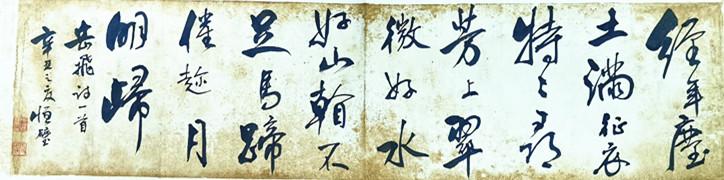 經年塵
土滿征衣
特〻尋
芳上翠
微好水
好山看不
足馬蹄
催趁月
明歸
岳飛詩一首
辛丑之夏恒璧